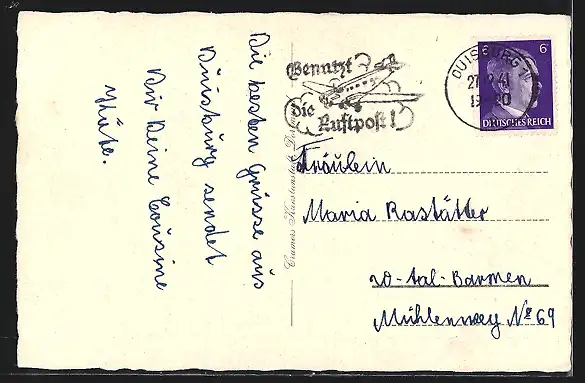 Die besten Grüsse aus
Duisburg sendet
Dir Deine Cousine
Käte.
Benutzt
die
Luftpost!
DUISBURG
41
6 6
DEUTSCHES REICH
Fräulein
Maria Rastätter
W-tal-Barmen
Mühlenweg No 69
Cramers Kunstanstalt